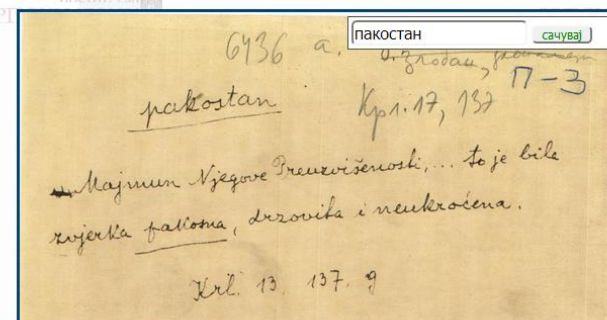 пакостан сачувај
6436 a. злобан,
П-3
pakostan Крл. 17, 137
Majmun Njegove Preuzvišenosti,... to je bila
zvjerka pakosna, drzovita i neukroćena.
Krl. 13. 137. g